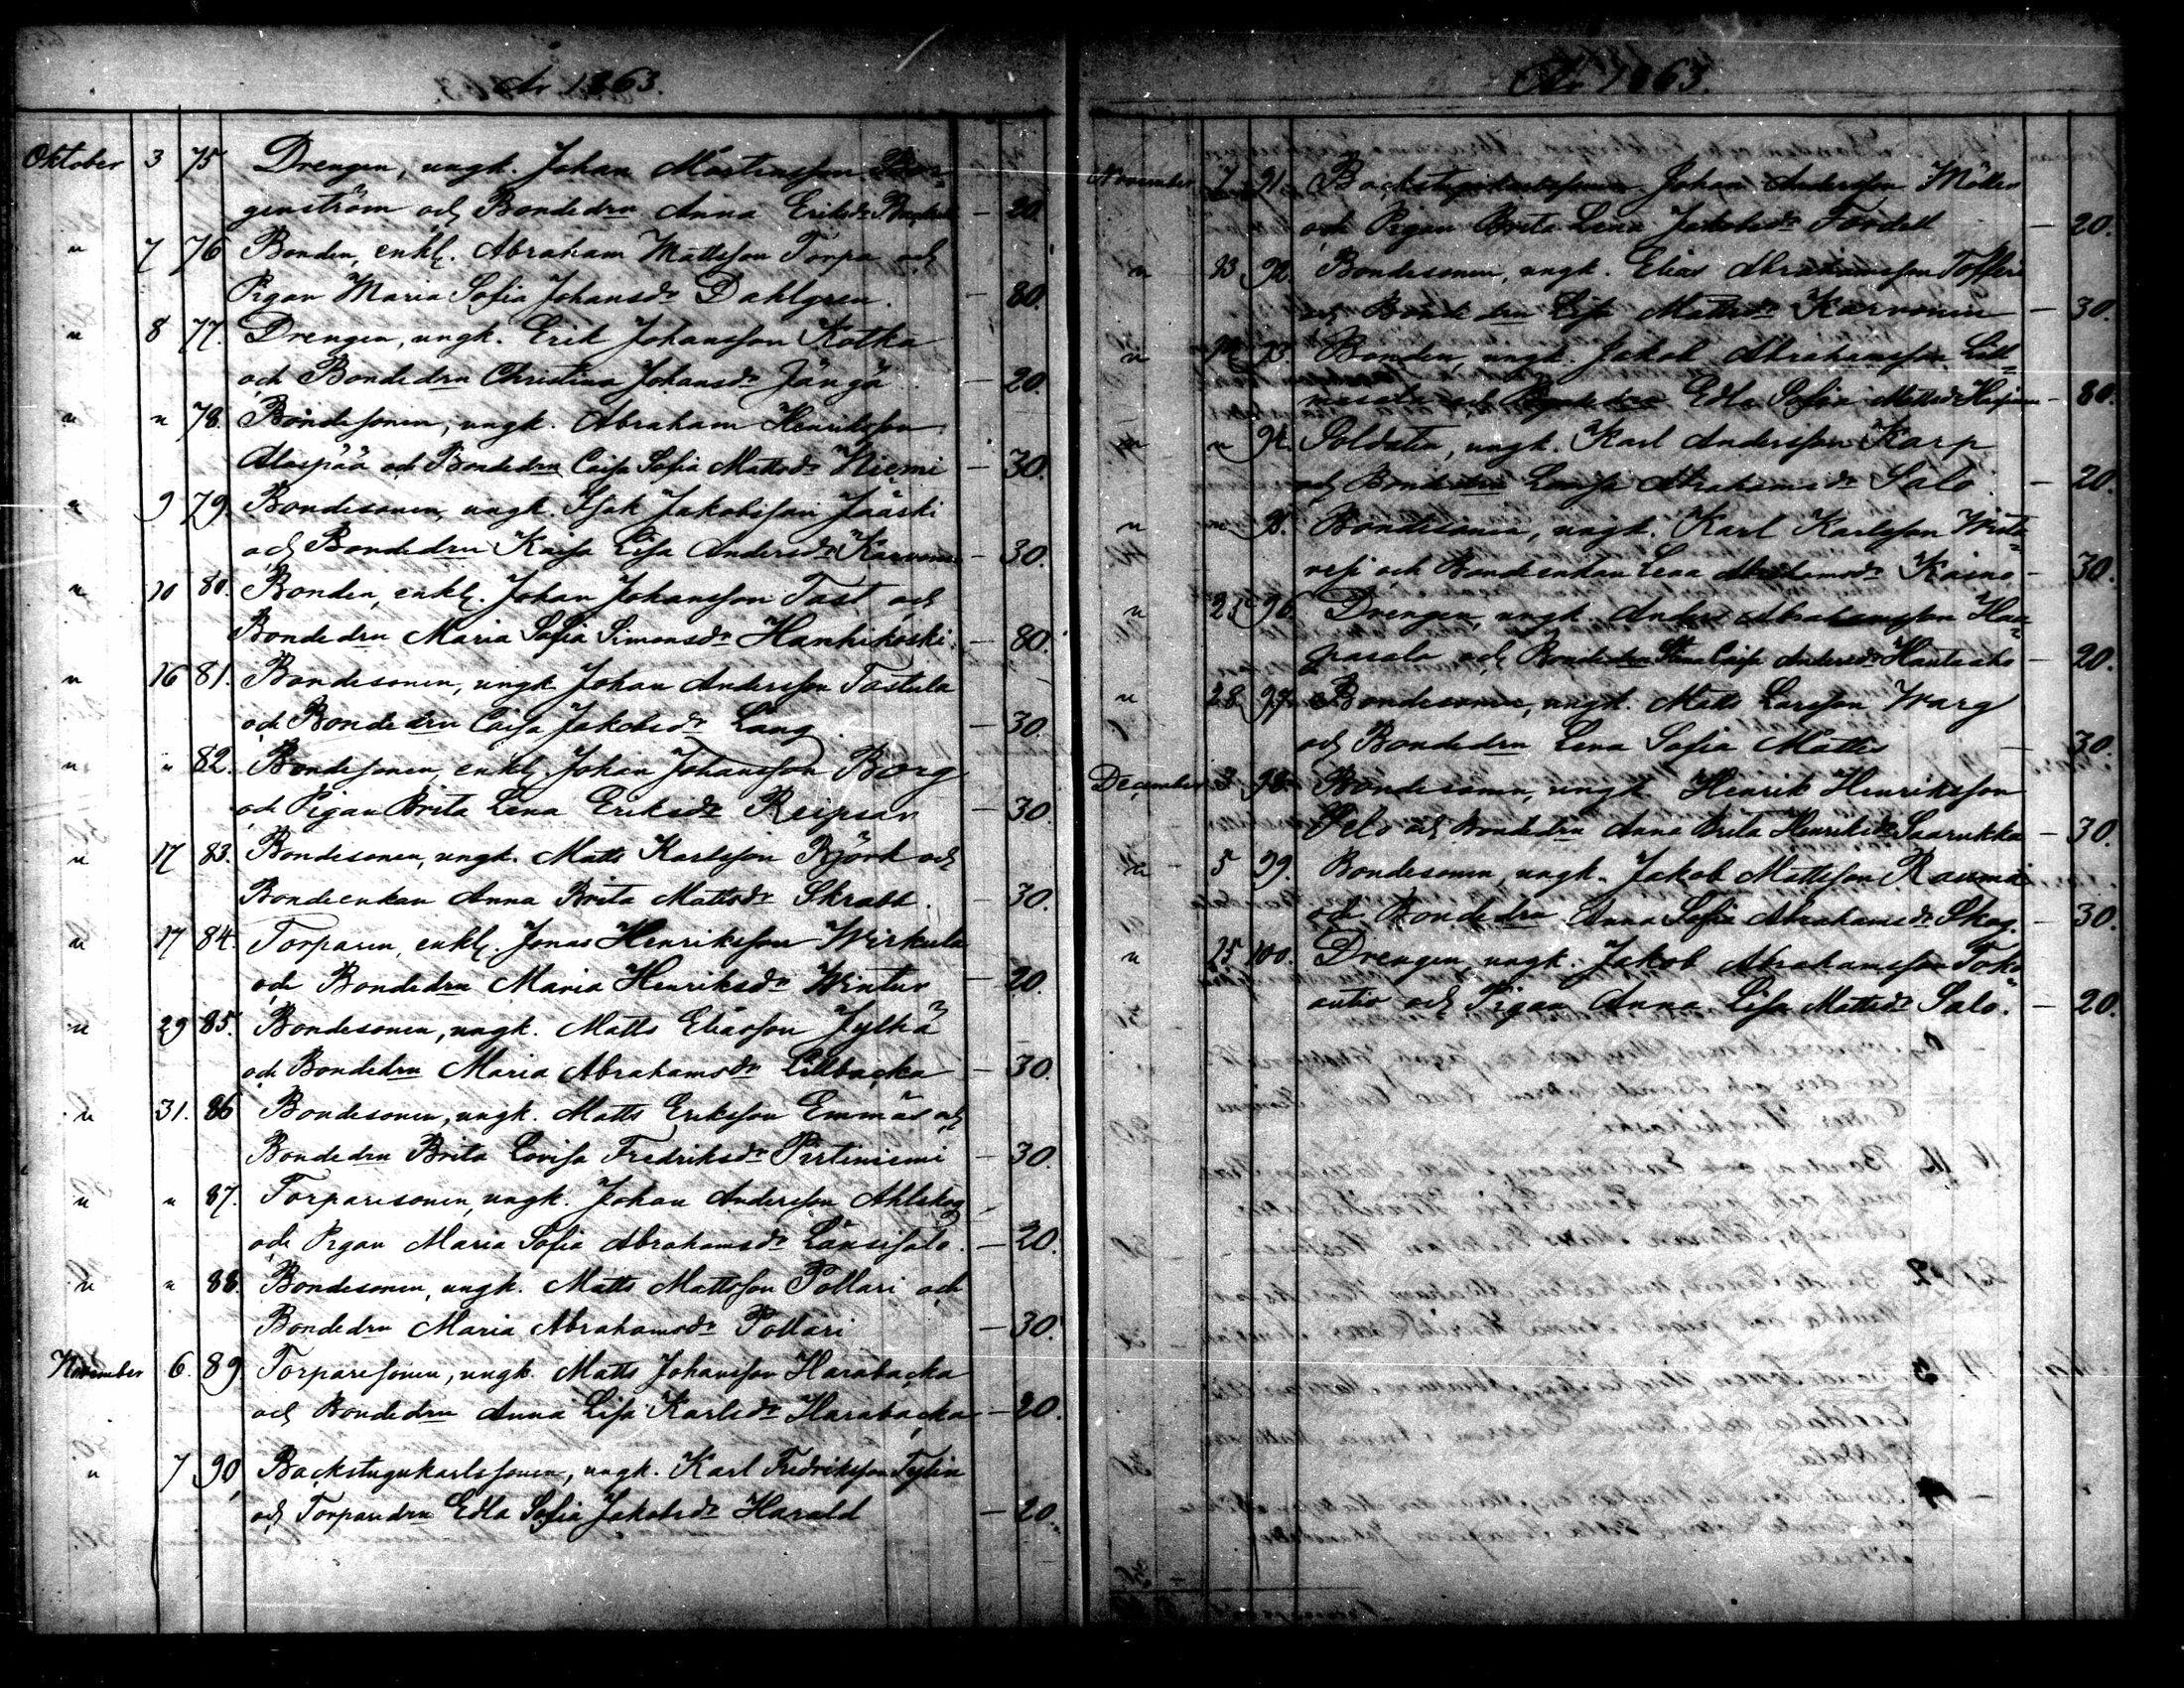 År 1863.
Oktober 3 75 Drengen, ungk. Johan Mårtensson Bor=
genström och Bondedrn Anna Eriksdr — 20.
" 7 76 Bonden, enkl. Abraham Mattsson Torpa och
Pigan Maria Sofia Johansdr Dahlgren. — 80.
" 8 77. Drengen, ungk. Erik Johansson Kotka
och Bondedrn Christina Johansdr Jänga — 20.
" " 78. Bondesonen, ungk. Abraham Henriksson
Alaspää och Bondedrn Caisa Sofia Mattsdr Niemi — 30.
" 9 79. Bondesonen, ungk. Isak Jakobsson Jääski
och Bondedrn Kaisa Lisa Andersdr Karvonen — 30.
" 10 80. Bonden, enkl. Johan Johansson Tast och
Bondedrn Maria Sofia Simonsdr Hanhikoski. — 80.
" 16 81. Bondesonen, ungk Johan Andersson Tastula
och Bondedrn Caisa Jakobsdr Lang. — 30.
" " 82. Bondesonen, enkl. Johan Johansson Borg
och Pigan Brita Lena Eriksdr Reipsar — 30.
" 17 83. Bondesonen, ungk. Matts Karlsson Björk och
Bondeenkan Anna Brita Mattsdr Skrabb. — 30.
" 17 84. Torparen, enkl. Jonas Henriksson Wirkula
och Bondedrn Maria Henriksdr Winter — 20.
" 29 85. Bondesonen, ungk. Matts Eliasson Jylhä
och Bondedrn Maria Abrahamsdr Lillbacka — 30.
" 31. 86 Bondesonen, ungk. Matts Eriksson Emmäs och
Bondedrn Brita Lovisa Fredriksdr Pirtiniemi — 30.
" " 87. Torparesonen, ungk. Johan Andersson Ahlskog
och Pigan Maria Sofia Abrahamsdr Länsisalo. — 20.
" " 88. Bondesonen, ungk. Matts Mattsson Pollari och
Bondedrn Maria Abrahamsdr Pollari — 30.
November 6. 89. Torparesonen, ungk. Matts Johansson Harabacka
och Bondedrn Anna Lisa Karlsdr Harabacka — 20.
" 7 90. Backstugukarlssonen, ungk. Karl Fredriksson Tylin
och Torparedrn Edla Sofia Jakobsdr Harald — 20.
År 1863.
November 7 91. Backstugukarlssonen Johan Andersson Möller
och Pigan Brita Lena Jakobsdr Fordell — 20.
" 13 92. Bondesonen, ungk. Elias Abrahamsson Tofferi
och Bondedrn Lisa Mattsdr Karvonen — 30.
" 93. Bonden, ungk. Jakob Abrahamsson Lill=
och Edla Sofia Mattsdr — 80.
" " 94. Soldaten, ungk. Karl Andersson Karp
och Bondedrn Lovisa Abrahamsdr Salo. — 20.
" " 95. Bondesonen, ungk. Karl Karlsson
och Bondeenkan Lena Abrahamsdr Kaino — 30.
" 25 96. Drengen, ungk. Anders Abrahamsson Haa=
pasalo och Bondedrn Stina Caisa Andersdr Hautaaho — 20.
" 28 97. Bondesonen, ungk. Matts Larsson Warg
och Bondedrn Lena Sofia Mattes — 30.
December 3. 98. Bondesonen, ungk Henrik Henriksson
Pelo och Bondedrn Anna Brita Henriksdr Saarukka — 30.
" 5 99. Bondesonen, ungk. Jakob Mattsson Rauma
och Bondedrn Anna Sofia Abrahamsdr Skog. — 30.
" 25 100. Drengen, ungk. Jakob Abrahamsson Toko=
autio och Pigan Anna Lisa Mattsdr Salo. — 20.